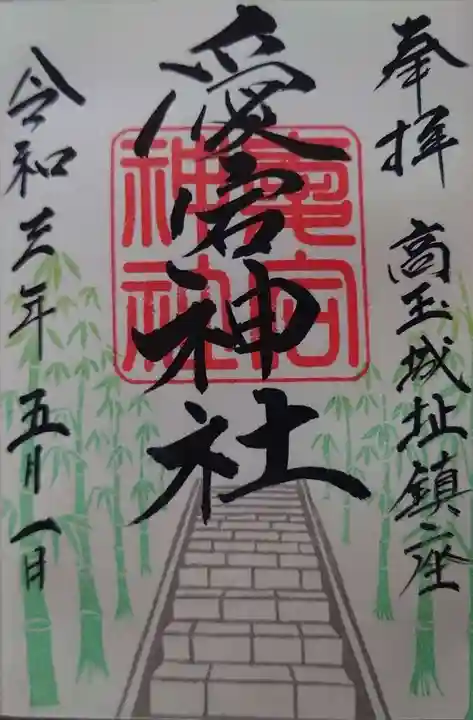 奉拝 高玉城址鎮座
愛宕神社
愛宕
神社
令和元年五月一日